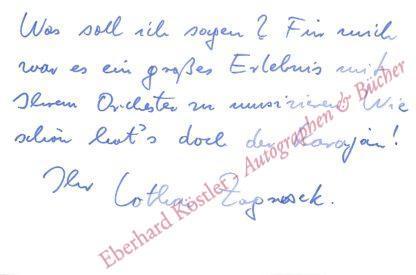 Was soll ich sagen? Für mich
war es ein großes Erlebnis mit
Ihrem Orchester zu musizieren! Wie
schön hat's doch der Karajan!
Ihr Lothar Zagrosek.
Eberhard Köstler - Autographen & Bücher